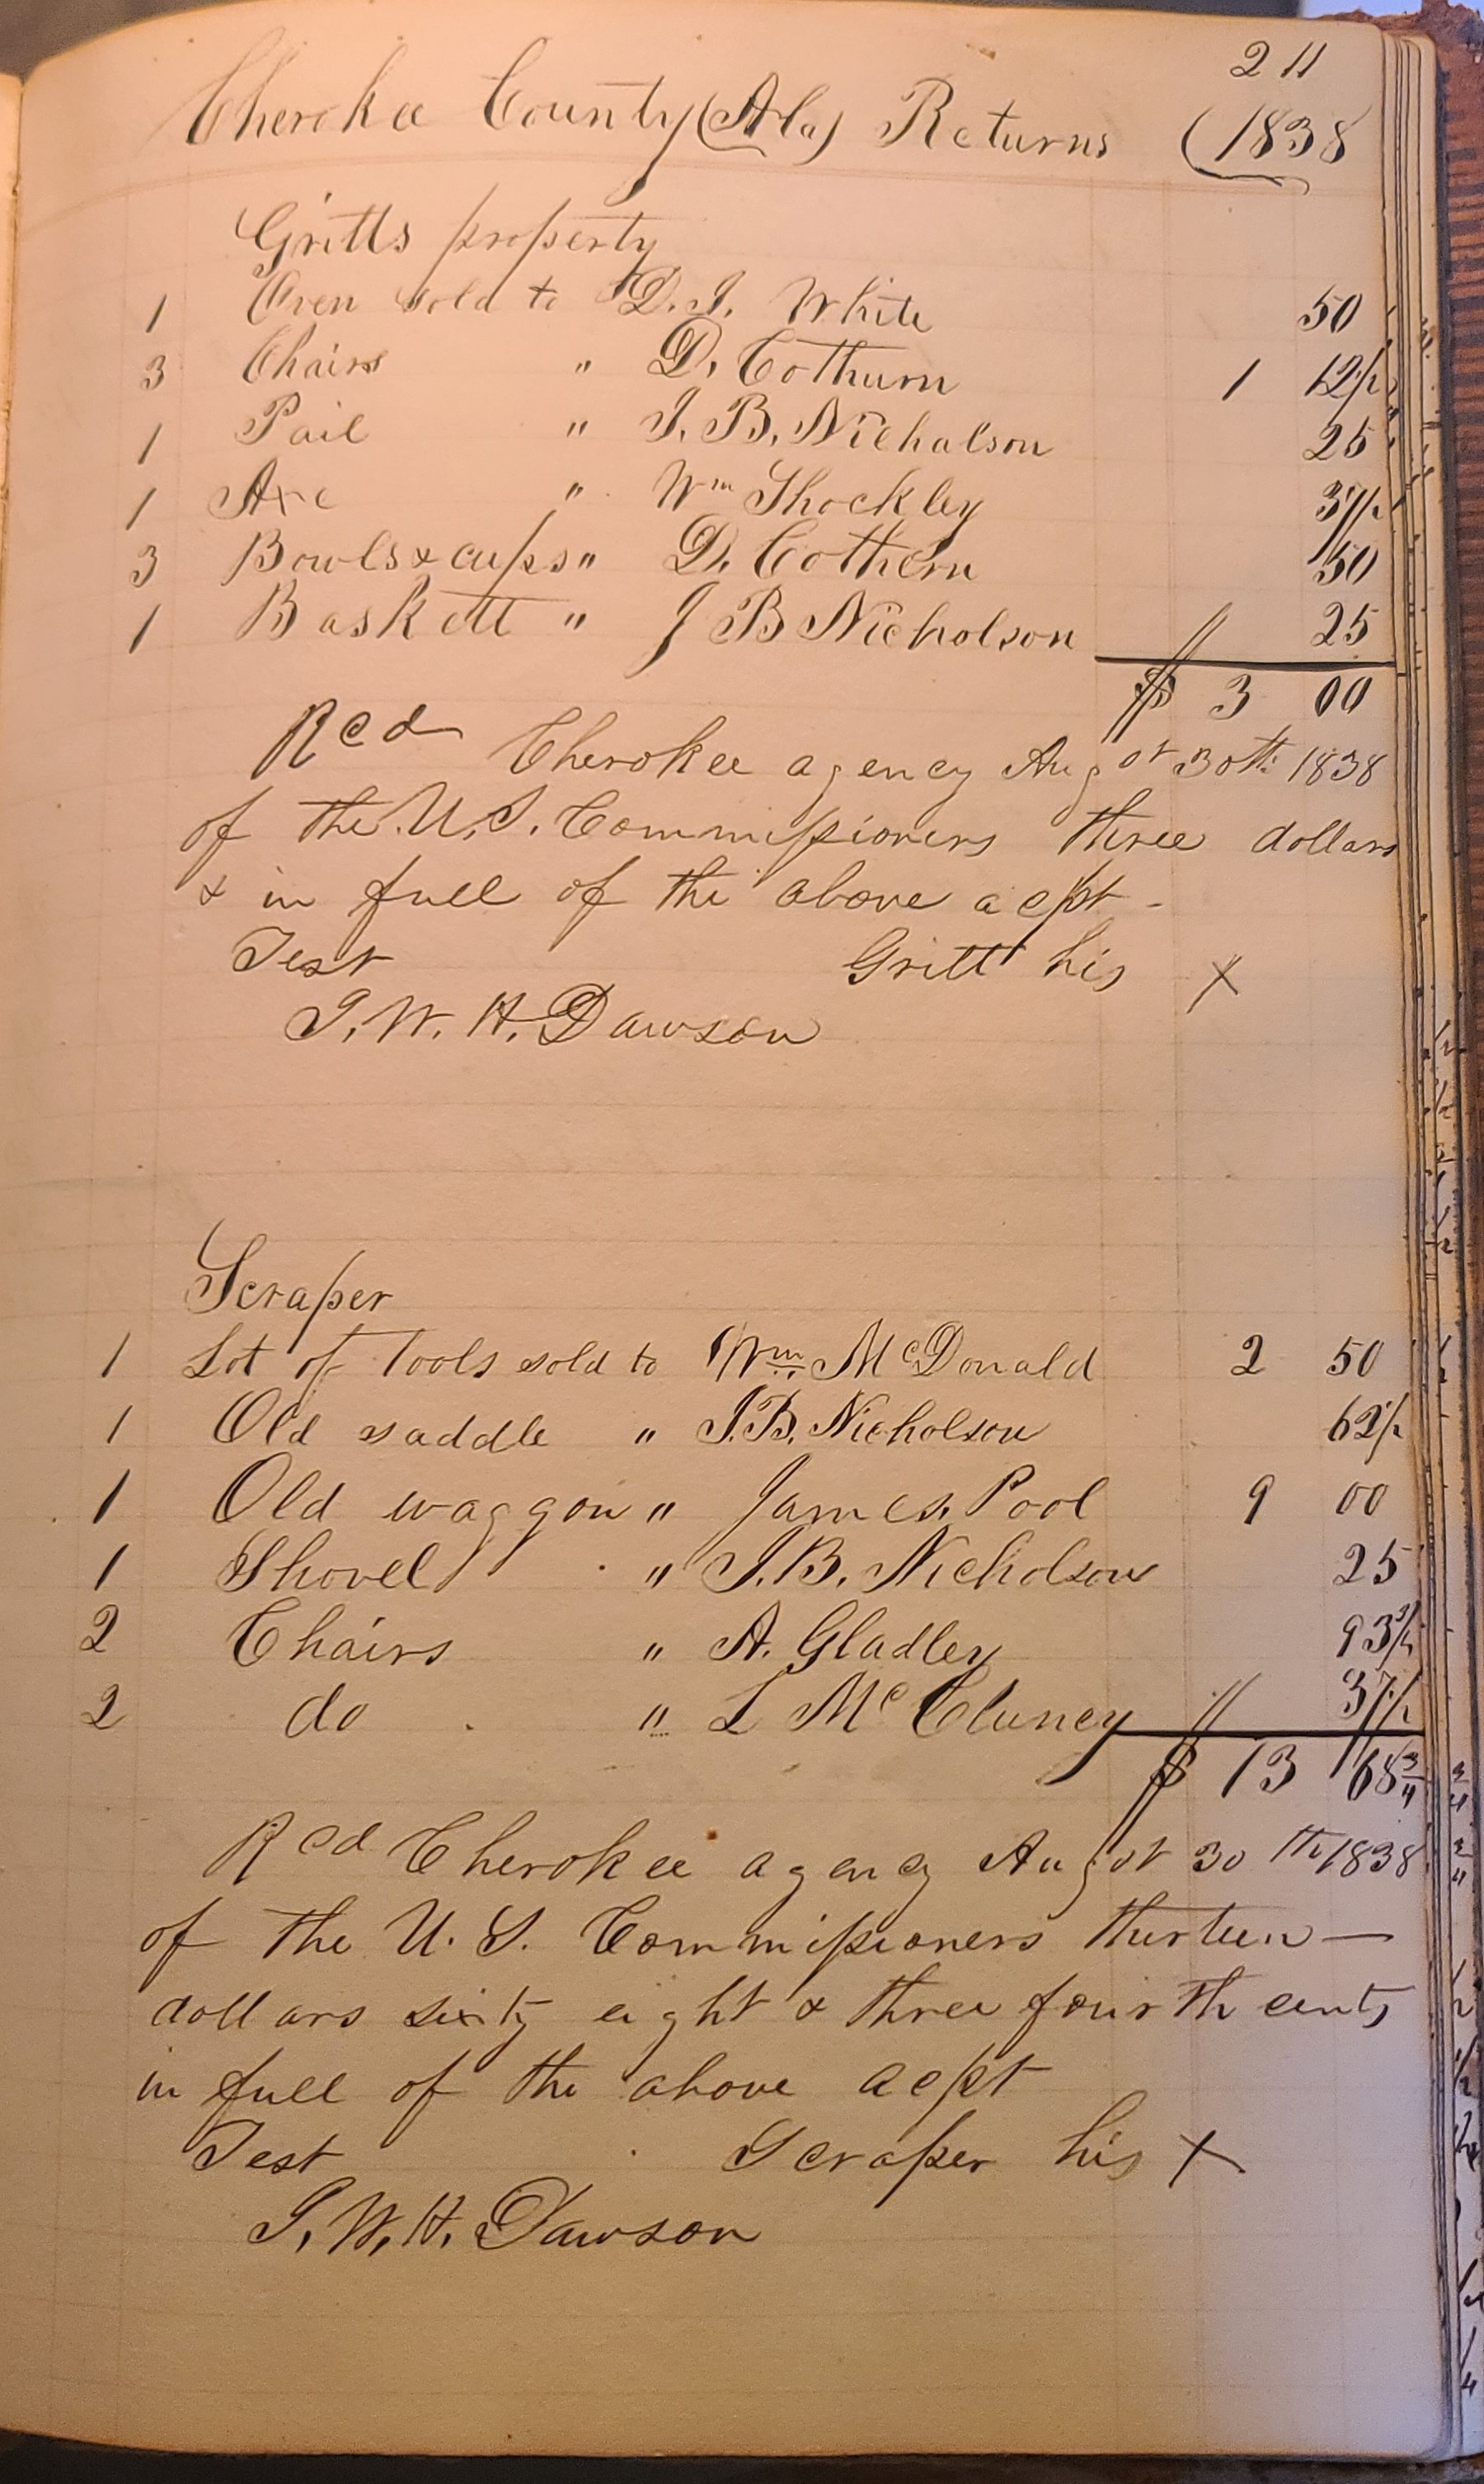 211
Cherokee County (Ala) Returns (1838
Gritts property
1 Oven sold to D. I. White 50
3 Chairs " D. Cothurn 1 12 1/2
1 Pail " J. B. Nichalson 25
1 Axe " Wm Shockley 37 1/2
3 Bowls & cups " D. Cothern 50
1 Baskett " J B Nicholson 25
$ 3 00
Recd Cherokee agency Augst 30th 1838
of the U. S. Commissioners three dollars
& in full of the above acpt -
Test Gritt his X
J. W. H. Dawson
Scraper
1 Lot of Tools sold to Wm McDonald 2 50
1 Old saddle " J. B. Nicholson 62 1/2
1 Old waggon " James Pool 9 00
1 Shovel " J. B. Nicholson 25
2 Chairs " A. Gladley 93 3/4
2 do " L McCluney 37 1/2
$ 13 68 3/4
Recd Cherokee agency Augst 30th 1838
of the U. S. Commissioners thirteen —
dollars sixty eight & three fourth cents
in full of the above acpt
Test Scraper his X
J. W. H. Dawson